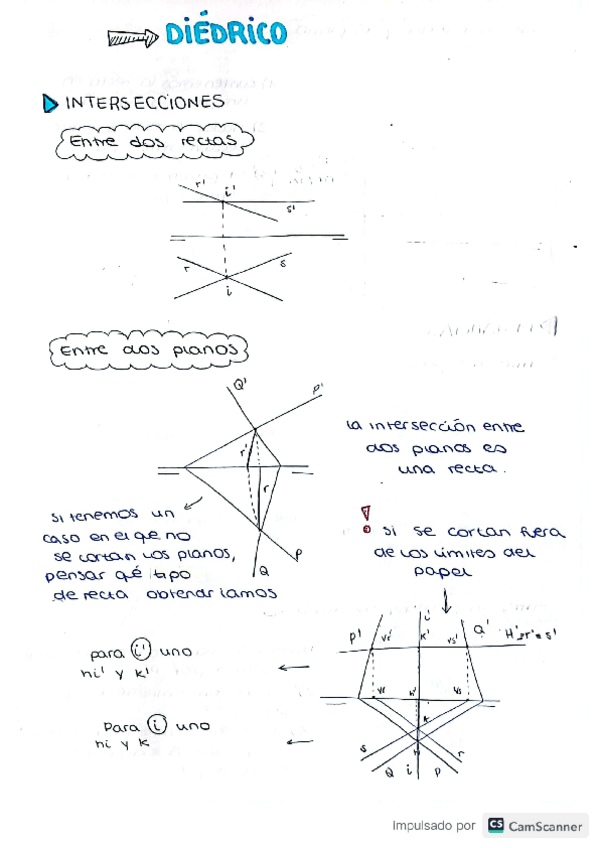 DIÉDRICO
INTERSECCIONES
Entre dos rectas
r'
i'
s'
r
s
i
Entre dos planos
Q'
P'
r'
r
P
Q
la intersección entre
dos planos es
una recta.
si tenemos un
caso en el qe no
se cortan los planos,
pensar qé tipo
de recta obtendríamos
! si se cortan fuera
de los límites del
papel
i'
P'
Vr'
K'
Vs'
Q'
Vr
h'
Vs
K
s
r
Q
i
P
para i' uno
hi' y k'
Para i uno
hi y k
Impulsado por CS CamScanner